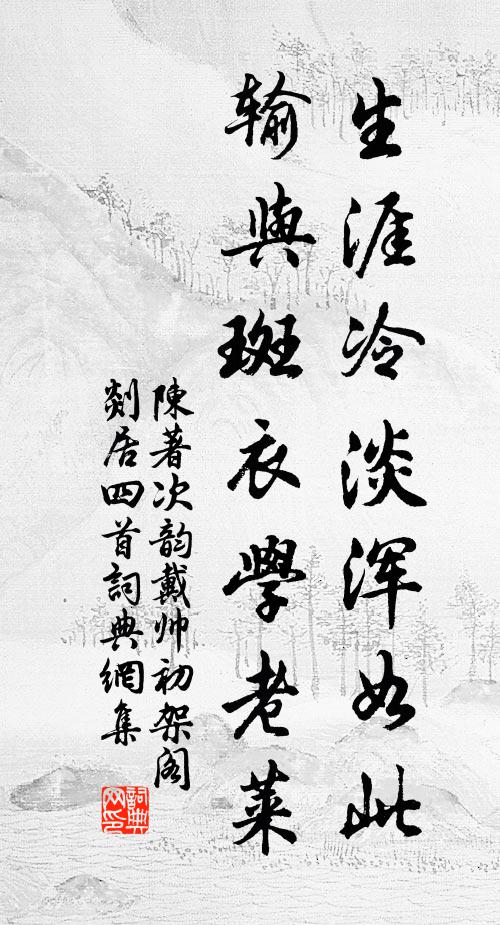 生涯冷淡浑如此
输与斑衣学老莱
陳著次韵戴帅初架阁
剡居四首詞典網集
詞典
网印